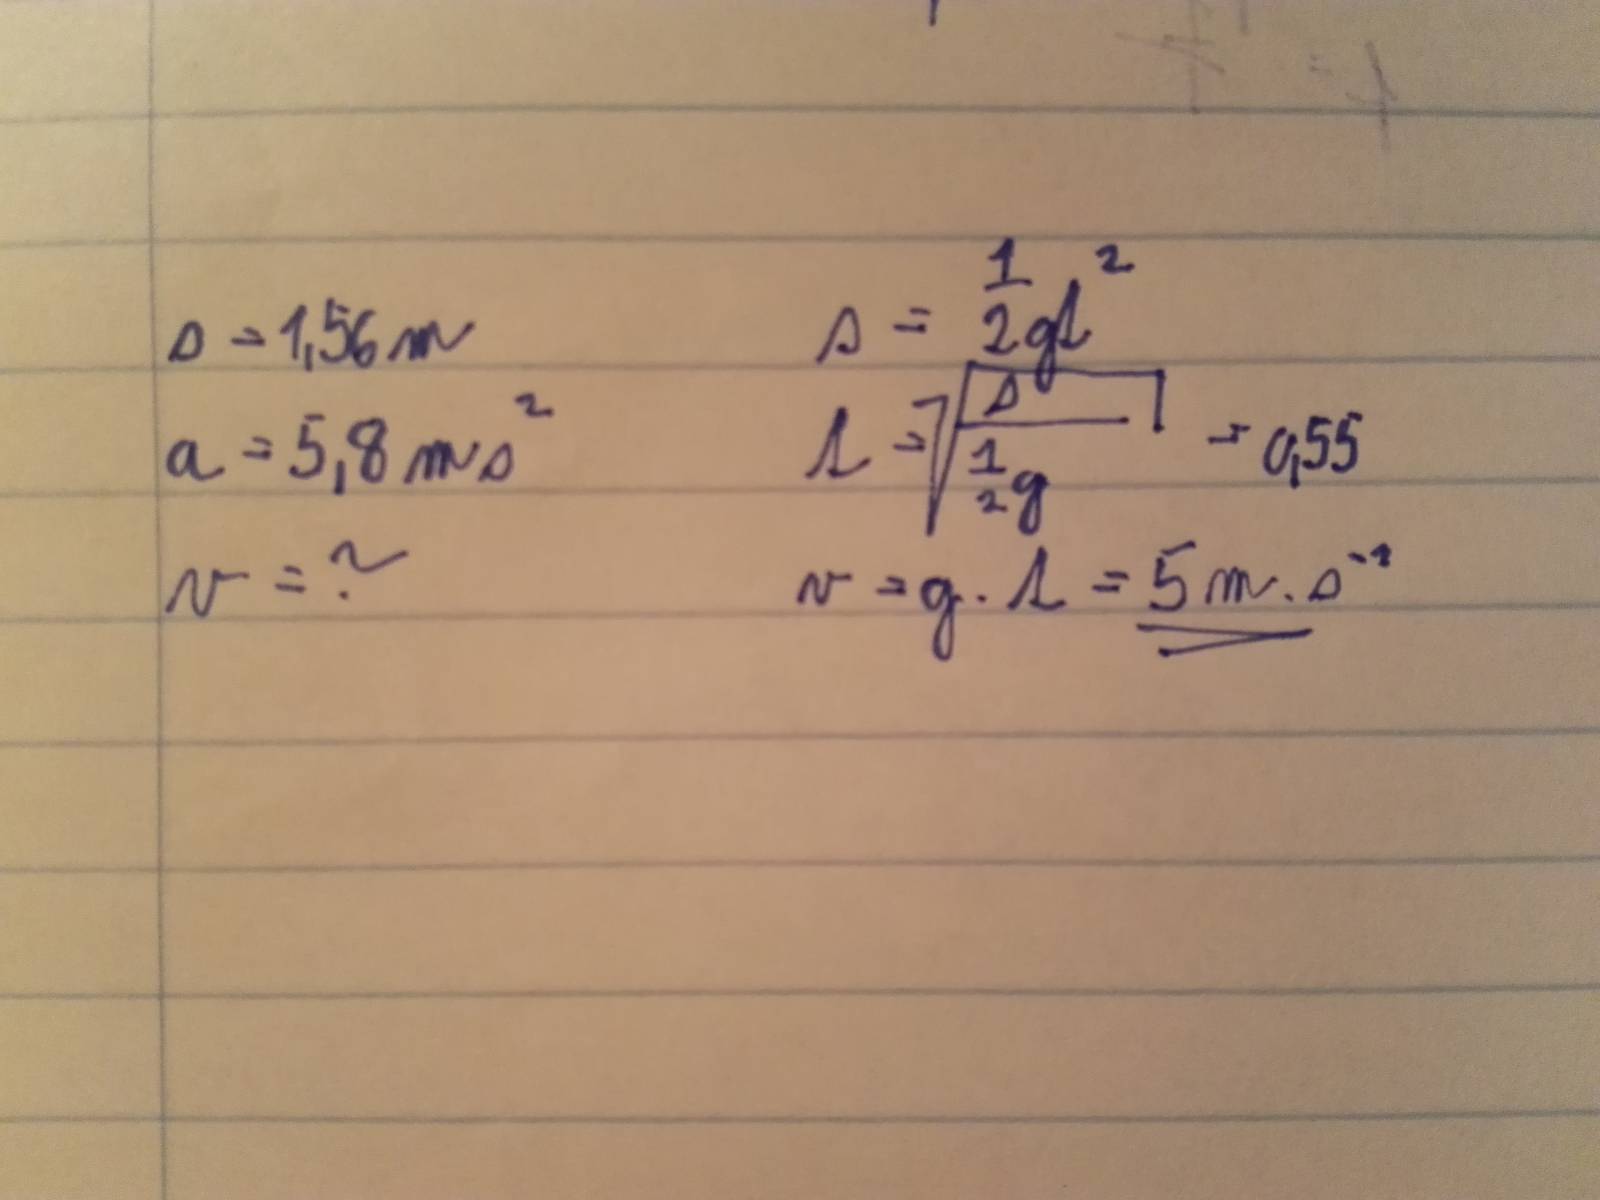 s = 1,56 m
a = 5,8 ms²
v = ?
s = 1/2 gt²
t = √(s / 1/2 g) = 0,55
v = g . t = 5 m . s⁻¹